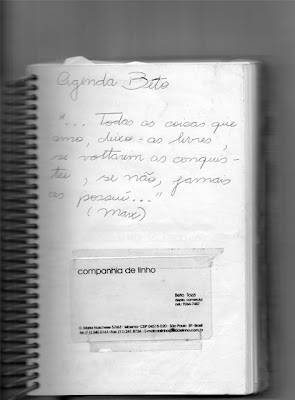 Agenda Beto
"... Todas as coisas que
amo, deixo-as livres,
se voltarem as conquis-
tei, se não, jamais
as possui..."
(Marx)
companhia de linho
Beto Tozzi
depto. comercial